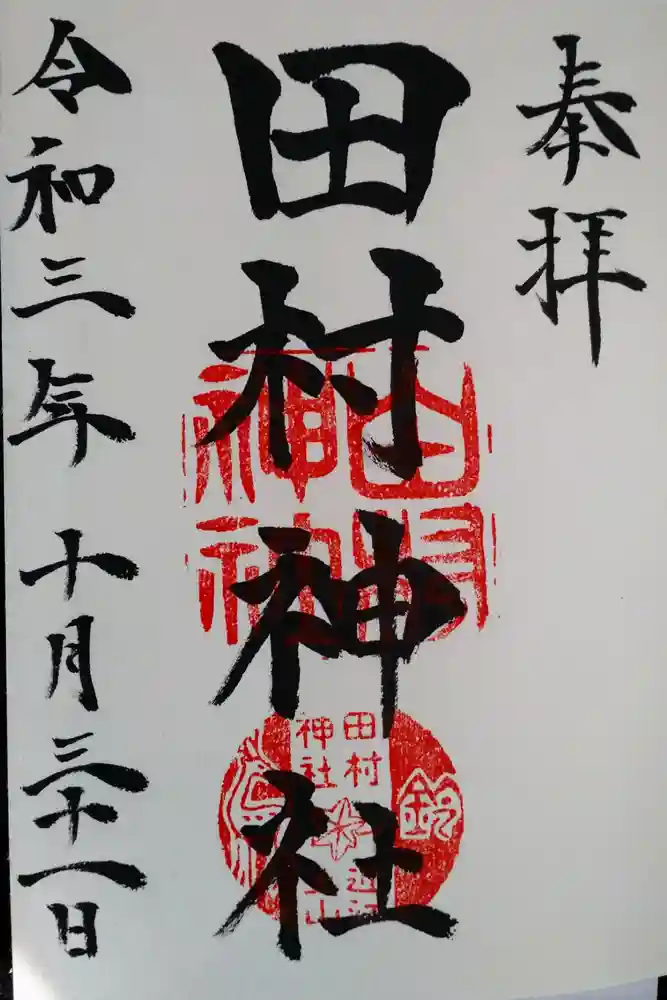 奉拝
田村神社
令和三年十月三十一日
田村
神社
鈴